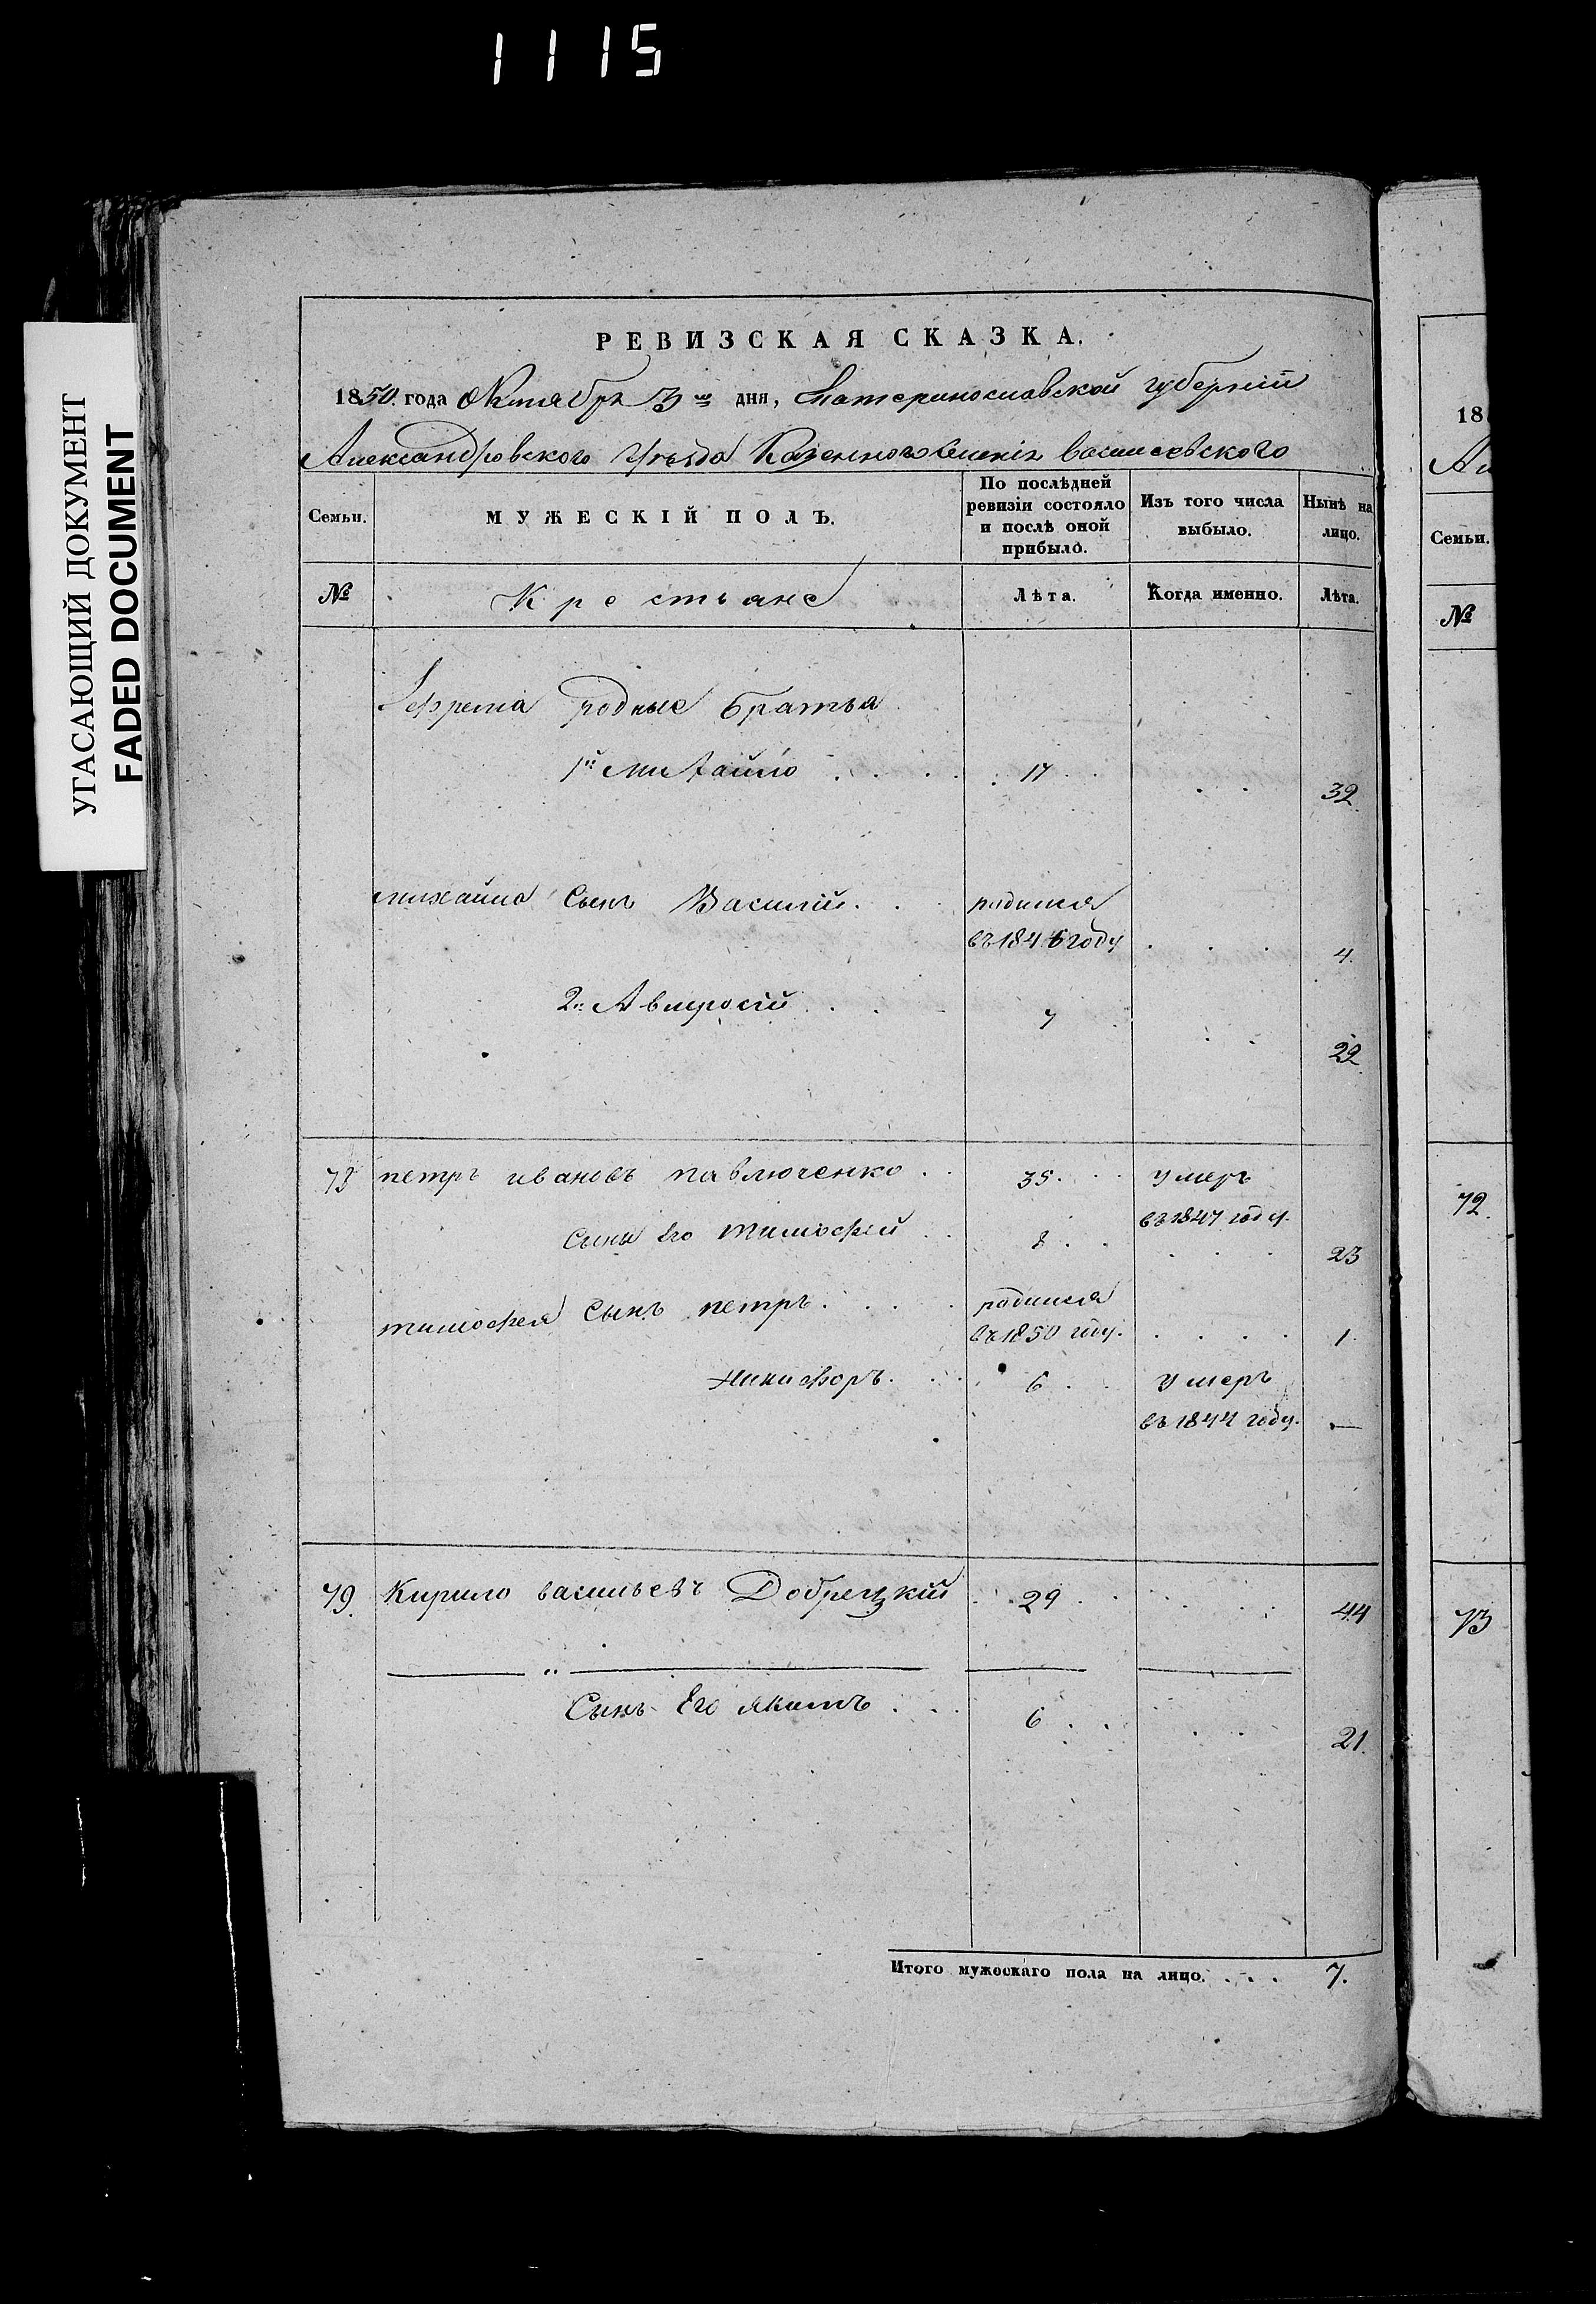 1115
УГАСАЮЩИЙ ДОКУМЕНТ
FADED DOCUMENT
РЕВИЗСКАЯ СКАЗКА.
1850. года Октября 3го дня, Екатеринославской губерній
Александровского Уѣзда Казенного Селенія Василевского
Семьи.
МУЖЕСКІЙ ПОЛЪ.
По послѣдней ревизіи состояло и послѣ оной прибыло.
Изъ того числа выбыло.
Нынѣ на лицо.
№
Крестьяне
Лѣта.
Когда именно.
Лѣта.
Јефрема родные братья
1й Михайло . . . . 17 . . 32
михайла Сынъ Василій . . родился
въ 1846 году . . . 4.
2й Авмросій . . . 7 . . 22
78 петръ ивановъ павлюченко . . 35 . . Умеръ
въ 1847 году.
Сынъ Его Тимофей . . 8 . . . . . 23
тимофея Сынъ петръ . . . . родился
въ 1850 году. . . . . 1
Никифоръ . . . 6 . . Умеръ
въ 1844 году. —
79. Кирило васильевъ Добрецкій . 29 . . . . . 44
Сынъ Его якимъ . . . 6 . . . . 21.
Итого мужескаго пола на лицо. . . . 7.
18
Ал
Семьи.
№
72.
73